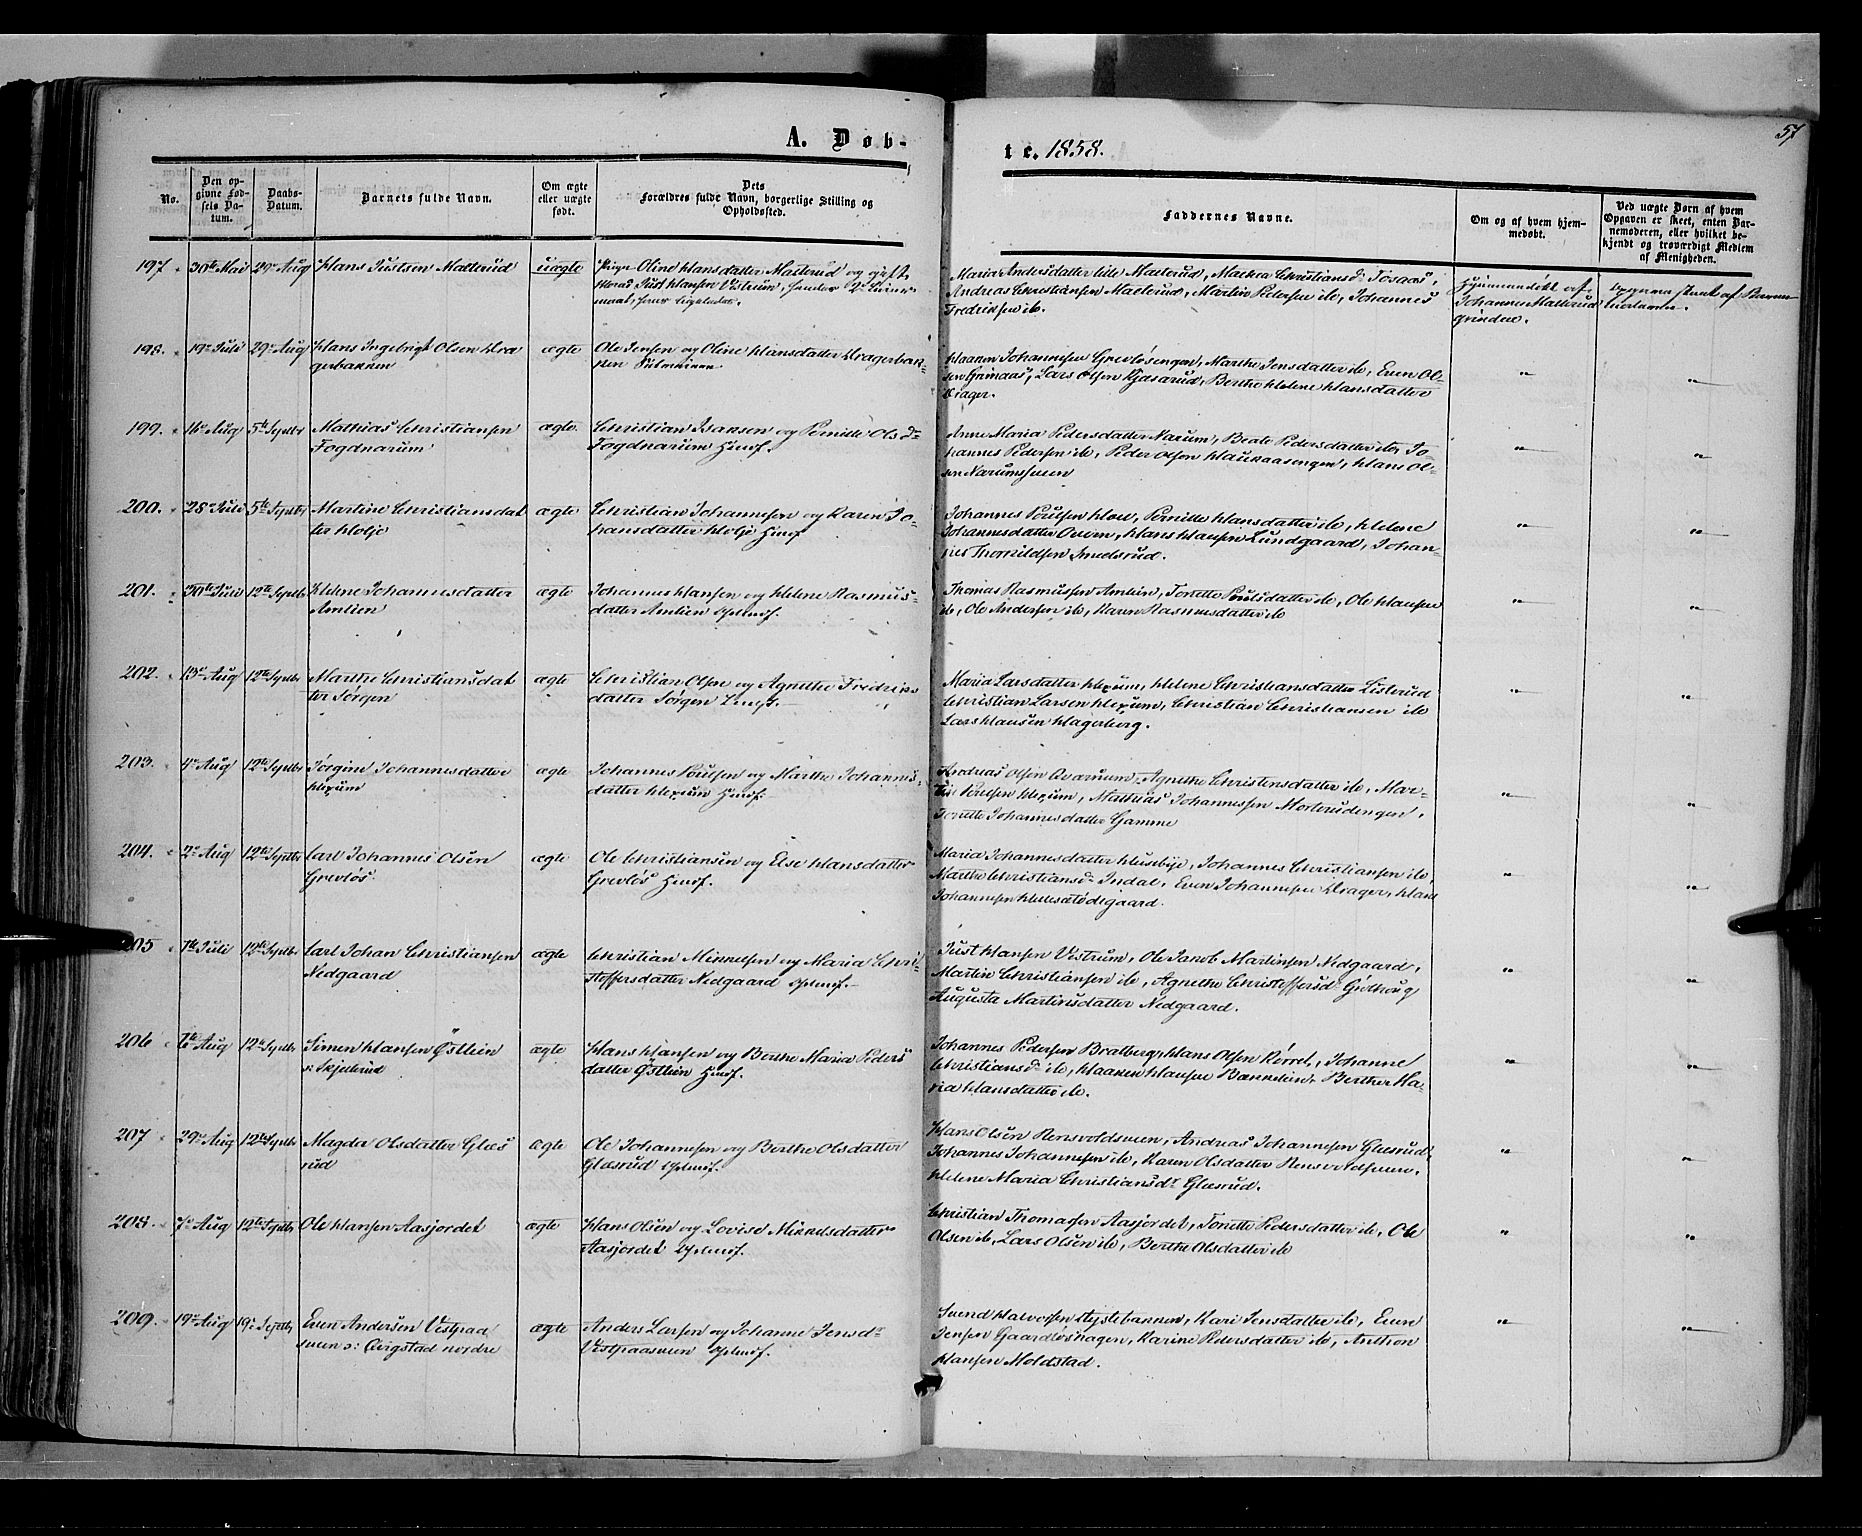 A. Døb-
te. 1858.
57
No.
Den opgivne Fødsels Datum.
Daabs-Datum.
Barnets fulde Navn.
Om ægte eller uægte født.
Dets Forældres fulde Navn, borgerlige Stilling og Opholdssted.
Faddernes Navne.
Om og af hvem hjemmedøbt.
Ved uægte Børn af hvem Opgaven er skeet, enten Barnemoderen, eller hvilket bekjendt og troværdigt Medlem af Menigheden.
197. 30te Mai 29de Aug Hans Justsen Mælterud uægte Pige Oline Hansdatter Mælterud og gift
Just Hansen Vestrum,
Maria Andersdatter ibid Mælterud, Mathea Christiansd.
Andreas Christiansen Mælterud, Martin Pedersen ib, Johannes
Fredriksen ib.
Hjemmedøbt af
Johannes Mælterud
198. 19de Juli 29de Aug Hans Ingebrigt Olsen Dra
gerbakken
ægte Ole Jensen og Oline Hansdatter Dragerbak-
ken
Haaken Johannesen Grevløsengen, Marthe Jensdatter ib, Even Ol-
sen Grinaas, Lars Olsen Kjøserud, Berthe Helene Hansdatter
Drager.
199. 16de Aug 5te Septbr Mathias Christiansen
Fogdnarum
ægte. Christian Isaksen og Pernille Olsdr
Fogdnarum Husmf.
Anne Maria Pedersdatter Narum, Beate Pedersdatter ib, Jo-
hannes Pedersen ib, Peder Olsen Haukaasengen, Hans Ol-
sen Narumseien
200. 28de Juli 5te Septbr Martine Christiansdat
ter Holje
ægte Christian Johannesen og Karen Jo-
hansdatter Holje Husmf
Johannes Poulsen Hoel, Pernille Hansdatter ib, Helene
Johannesdatter Overn, Hans Hansen Lundgaard, Johan-
nes Thorkildsen Smedsrud.
201. 30te Juli 12te Septbr Helene Johannesdatter
Amlien
ægte Johannes Hansen og Helene Rasmus-
datter Amlien
Thomas Rasmussen Amlien, Tonette Poulsdatter ib, Ole Hansen
ib, Ole Andersen ib, Karen Rasmusdatter ib
202. 13de Aug 12te Septbr Marthe Christiansdat
ter Sørgen
ægte Christian Olsen og Agnethe Fredriks
datter Sørgen
Maria Larsdatter Hexum, Helene Christiansdatter Listerud
Christian Larsen Hexum, Christian Christiansen ib
Lars Hansen Hagerberg.
203. 4de Aug 12te Septbr Jørgine Johannesdatter
Hexum
ægte Johannes Poulsen og Marthe Johannes-
datter Hexum Husmf.
Andreas Olsen Qvarnum, Agnethe Christensdatter ib, Mar-
tin Poulsen Hexum, Mathias Johannessen Morterudengen,
Tonette Johannesdatter Gamme
204. 2de Aug 12te Septbr Carl Johannes Olsen
Grevløs.
ægte Ole Christiansen og Else Hansdatter
Grevløs Husmf.
Maria Johannesdatter Huseby, Johannes Christiansen ib,
Marthe Christiansdr Indal, Even Johannesen Drager, Hans
Johannesen Hellesætødegaard.
205 1te Juli 12te Septbr Carl Johan Christiansen
Nedgaard
ægte Christian Mikkelsen og Maria Chri-
stoffersdatter Nedgaard
Just Hansen Vestrum, Ole Jakob Martinsen Nedgaard,
Martin Christiansen ib, Agnethe Christoffersd.
Augusta Martinsdatter Nedgaard.
206 6te Aug 12te Septbr Simen Hansen Østlien
o: Skjellerud
ægte Hans Hansen og Berthe Maria Peders
datter Østlien Husmf.
Johannes Pedersen Bratberg, Hans Olsen
Johanne
Christiansdr ib, Haaken Hansen Bakkelien, Berthe Ma-
ria Hansdatter ib.
207 29de Aug 12te Septbr Magda Olsdatter Glæs
rud
ægte Ole Johannesen og Berthe Olsdatter
Glæsrud
Hans Olsen Rensvoldseien, Andreas Johannesen Glæsrud,
Johannes Johannesen ib, Karen Olsdatter Rensvoldseien,
Helene Maria Christiansdr Glæsrud.
208. 7de Aug 12te Septbr Ole Hansen Aasjordet
ægte Hans Olsen og Lovise Mikkelsdatter
Aasjordet
Christian Thomasen Aasjordet, Tonette Pedersdatter ib, Ole
Olsen ib, Lars Olsen ib, Berthe Olsdatter ib
209. 19de Aug 19de Septbr Even Andersen Vestraa
seien o: Qvigstad nordre
ægte Anders Larsen og Johanne Jensdr
Vestraaseien
Svend Halvorsen Hyslebakken, Kari Jensdatter ib, Even
Jensen Gaardløshagen, Karine Pedersdatter ib, Anthon
Hansen Moldstad.